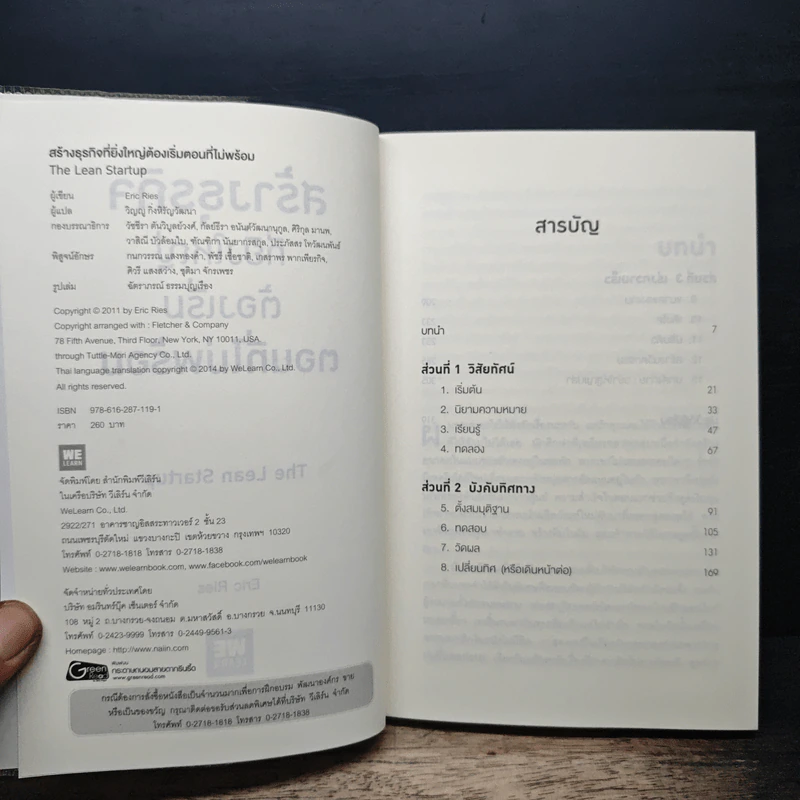 สร้างธุรกิจที่ยิ่งใหญ่ต้องเริ่มตอนที่ไม่พร้อม
The Lean Startup
ผู้เขียน Eric Ries
ผู้แปล วิญญู กิ่งหิรัญวัฒนา
กองบรรณาธิการ วัชชิรา ตันวิบูลย์วงศ์, กัลย์ธีรา อนันต์วัฒนานุกูล, ศิริกุล มานพ,
วาสิณี บัวล้อมใบ, ขัณฑิกา นันยากรสกุล, ประภัสสร โทวัฒนพันธ์
พิสูจน์อักษร กนกวรรณ แสงทองคำ, พัชรี เชื้อชาติ, เกสราพร พากเพียรกิจ,
ศิวรี แสงสว่าง, ชุติมา จักรเพชร
รูปเล่ม ฉัตราภรณ์ ธรรมบุญเรือง
Copyright © 2011 by Eric Ries
Copyright arranged with : Fletcher & Company
78 Fifth Avenue, Third Floor, New York, NY 10011, USA
through Tuttle-Mori Agency Co., Ltd.
Thai language translation copyright © 2014 by WeLearn Co., Ltd.
All rights reserved.
ISBN 978-616-287-119-1
ราคา 260 บาท
WE
LEARN
จัดพิมพ์โดย สำนักพิมพ์วีเลิร์น
ในเครือบริษัท วีเลิร์น จำกัด
WeLearn Co., Ltd.
2922/271 อาคารชาญอิสสระทาวเวอร์ 2 ชั้น 23
ถนนเพชรบุรีตัดใหม่ แขวงบางกะปิ เขตห้วยขวาง กรุงเทพฯ 10320
โทรศัพท์ 0-2718-1818 โทรสาร 0-2718-1838
Website : www.welearnbook.com, www.facebook.com/welearnbook
จัดจำหน่ายทั่วประเทศโดย
บริษัท อมรินทร์บุ๊ค เซ็นเตอร์ จำกัด
108 หมู่ 2 ถ.บางกรวย-จงถนอม ต.มหาสวัสดิ์ อ.บางกรวย จ.นนทบุรี 11130
โทรศัพท์ 0-2423-9999 โทรสาร 0-2449-9561-3
Homepage : http://www.naiin.com
Green Read
พิมพ์บน
กระดาษถนอมสายตากรีนรี้ด
www.greenread.com
กรณีต้องการสั่งซื้อหนังสือเป็นจำนวนมากเพื่อการฝึกอบรม พัฒนาองค์กร ขาย
หรือเป็นของขวัญ กรุณาติดต่อขอรับส่วนลดพิเศษได้ที่บริษัท วีเลิร์น จำกัด
โทรศัพท์ 0-2718-1818 โทรสาร 0-2718-1838
สารบัญ
บทนำ 7
ส่วนที่ 1 วิสัยทัศน์
1. เริ่มต้น 21
2. นิยามความหมาย 33
3. เรียนรู้ 47
4. ทดลอง 67
ส่วนที่ 2 บังคับทิศทาง
5. ตั้งสมมุติฐาน 91
6. ทดสอบ 105
7. วัดผล 131
8. เปลี่ยนทิศ (หรือเดินหน้าต่อ) 169